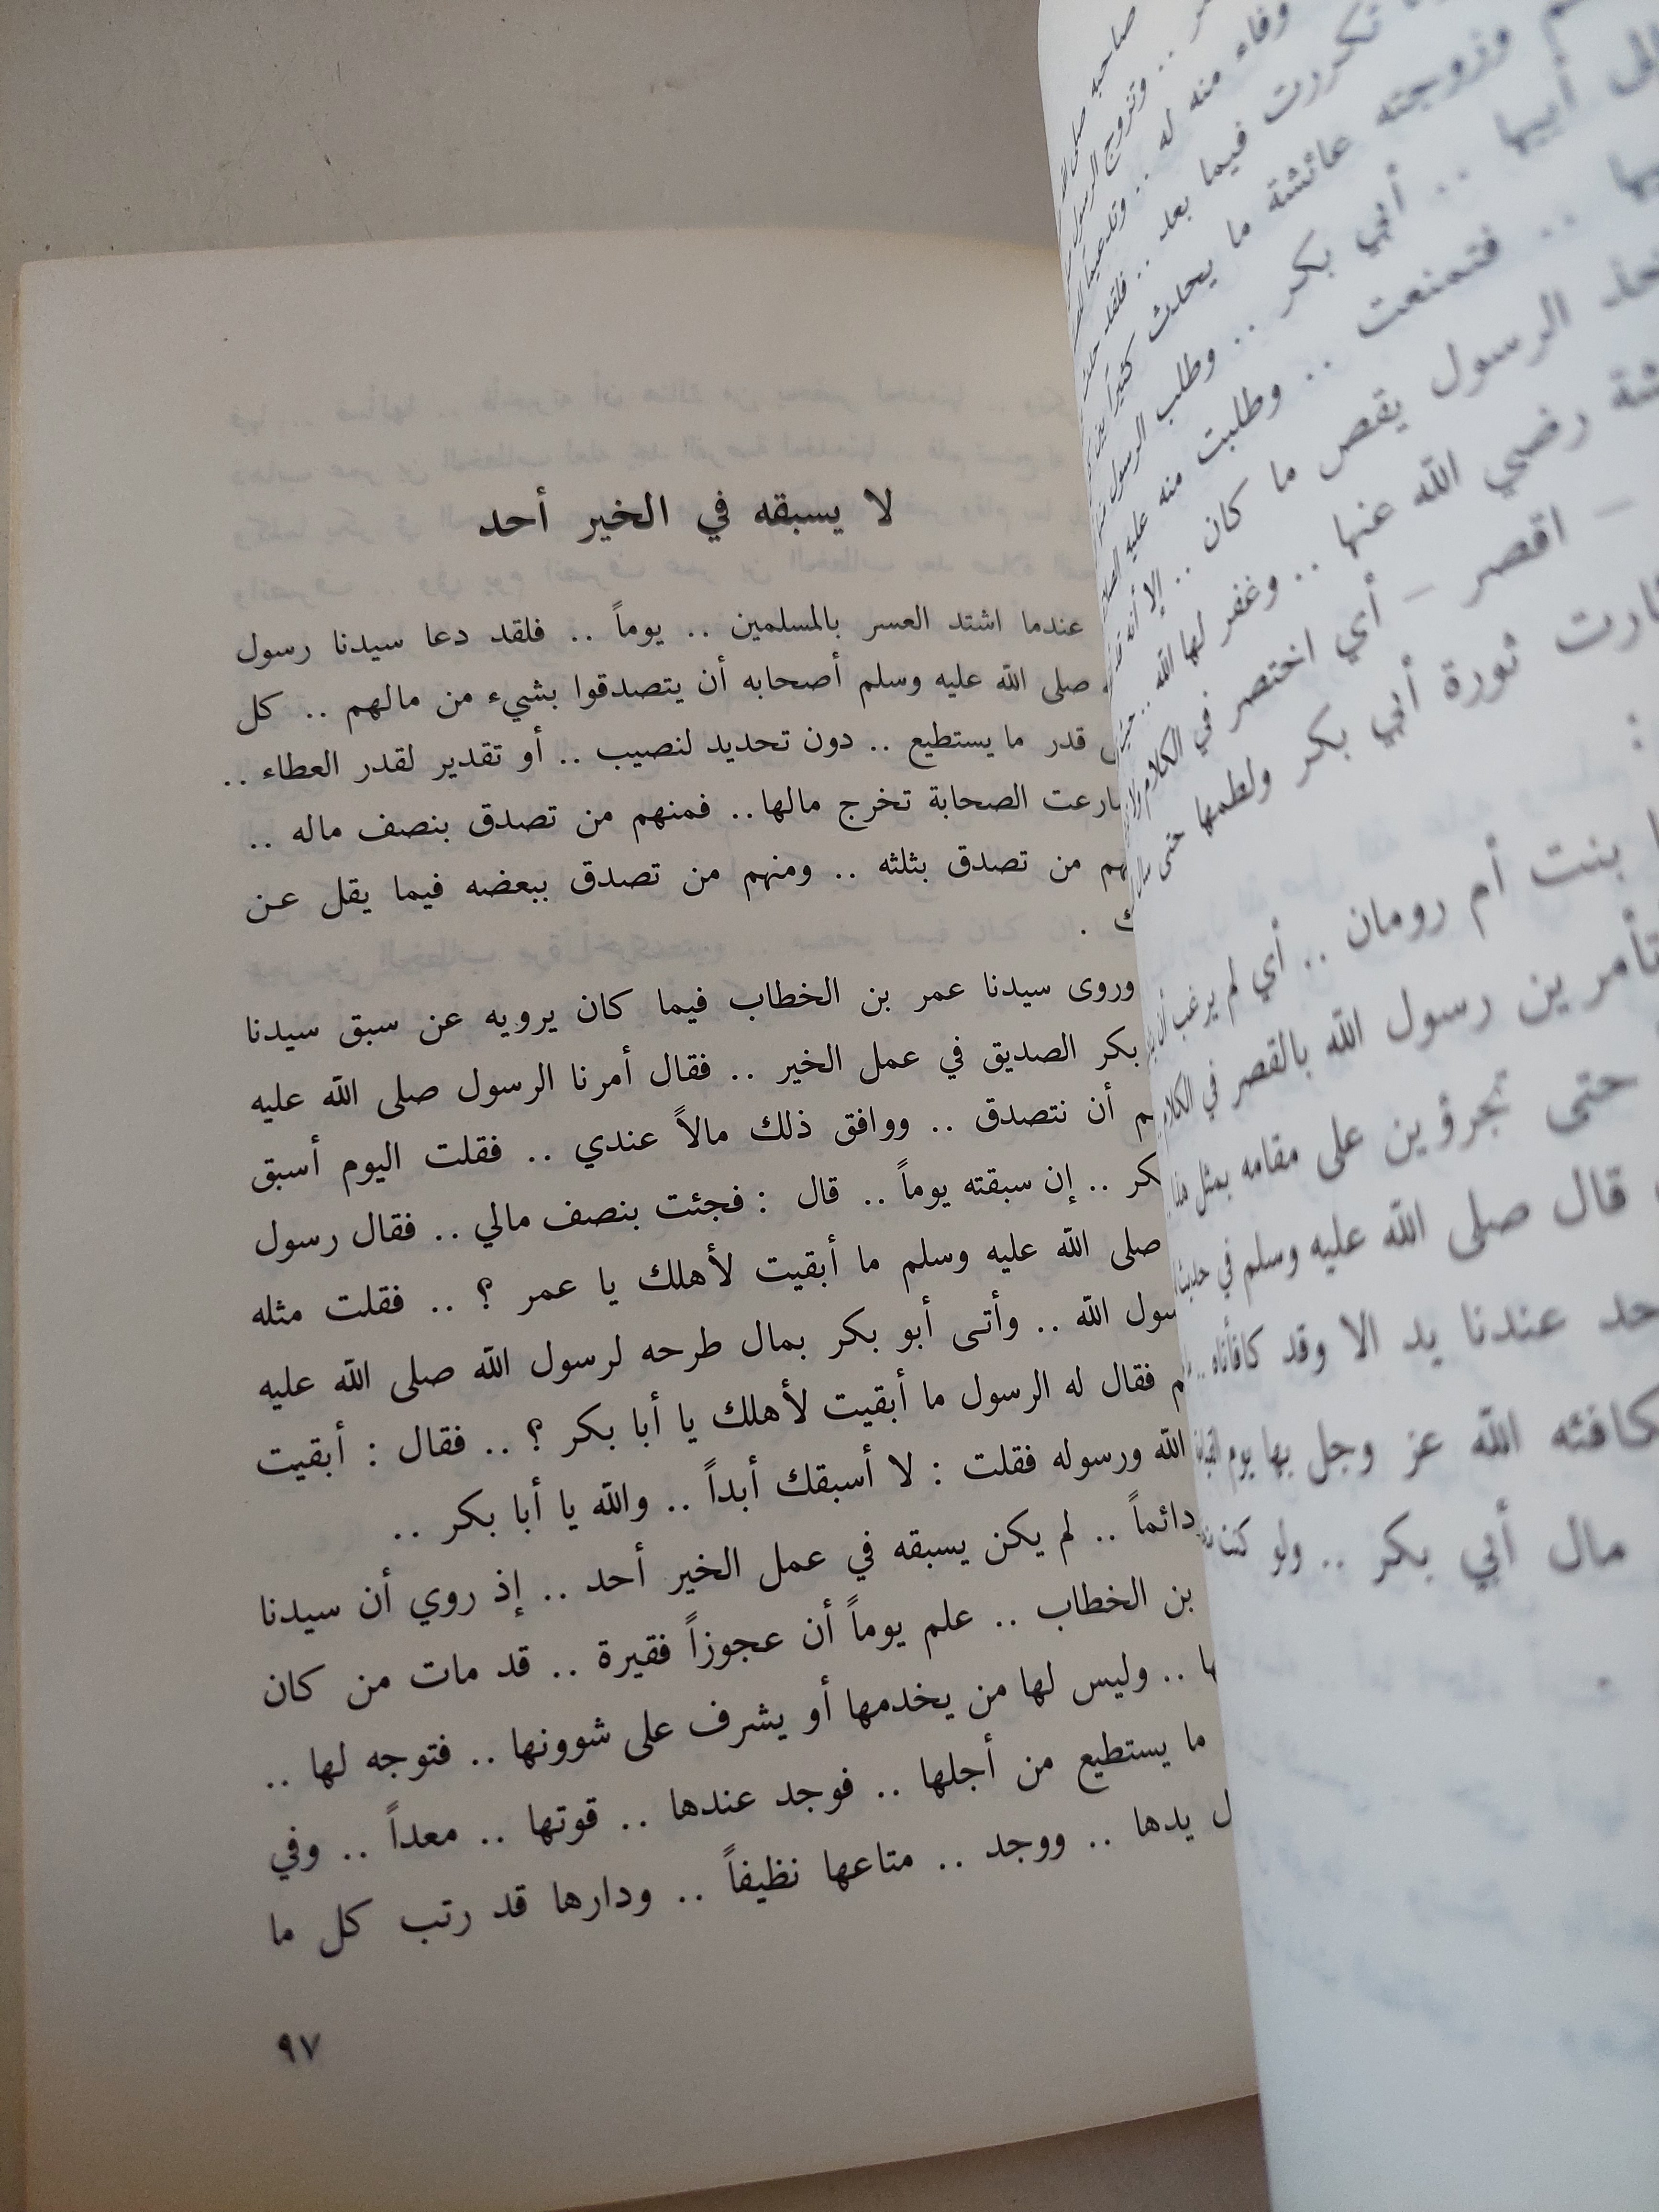 لا يسبقه في الخير أحد
عندما اشتد العسر بالمسلمين .. يوماً .. فلقد دعا سيدنا رسول
صلى الله عليه وسلم أصحابه أن يتصدقوا بشيء من مالهم .. كل
قدر ما يستطيع .. دون تحديد لنصيب .. أو تقدير لقدر العطاء ..
الصحابة تخرج مالها .. فمنهم من تصدق بنصف ماله ..
من تصدق بثلثه .. ومنهم من تصدق ببعضه فيما يقل عن
وروى سيدنا عمر بن الخطاب فيما كان يرويه عن سبق سيدنا
بكر الصديق في عمل الخير .. فقال أمرنا الرسول صلى الله عليه
أن نتصدق .. ووافق ذلك مالاً عندي .. فقلت اليوم أسبق
.. إن سبقته يوماً .. قال : فجئت بنصف مالي .. فقال رسول
صلى الله عليه وسلم ما أبقيت لأهلك يا عمر ؟ .. فقلت مثله
الله .. وأتى أبو بكر بمال طرحه لرسول الله صلى الله عليه
فقال له الرسول ما أبقيت لأهلك يا أبا بكر ؟ .. فقال : أبقيت
الله ورسوله فقلت : لا أسبقك أبداً .. والله يا أبا بكر ..
دائماً .. لم يكن يسبقه في عمل الخير أحد .. إذ روي أن سيدنا
بن الخطاب .. علم يوماً أن عجوزاً فقيرة .. قد مات من كان
.. وليس لها من يخدمها أو يشرف على شوونها .. فتوجه لها ..
ما يستطيع من أجلها .. فوجد عندها .. قوتها .. معداً .. وفي
يدها .. ووجد .. متاعها نظيفاً .. ودارها قد رتب كل ما
٩٧
صاحبه صلى
.. وتزوج الرسول
وفاء منه له .. وتدعيماً
تكررت فيما بعد .. فلقد
وزوجته عائشة ما يحدث كثيراً بين
أبيها .. أبي بكر .. وطلب الرسول
.. فتمنعت .. وطلبت منه عليه
الرسول يقص ما كان .. إلا أنه
رضي الله عنها .. وغفر لها الله ..
– اقصر – أي اختصر في الكلام
ثورة أبي بكر ولطمها حتى
:
بنت أم رومان .. أي لم يرغب أن
تأمرين رسول الله بالقصر في الكلام
حتى تجرؤين على مقامه بمثل هذا
قال صلى الله عليه وسلم في
عندنا يد الا وقد كافأناه ..
الله عز وجل بها يوم
مال أبي بكر .. ولو كنت